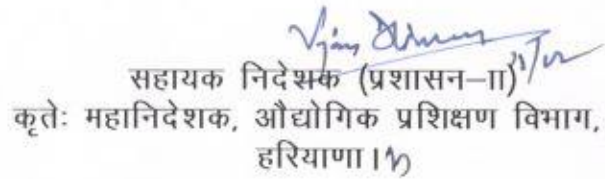 सहायक निदेशक (प्रशासन–II)
कृतेः महानिदेशक, औद्योगिक प्रशिक्षण विभाग,
हरियाणा।